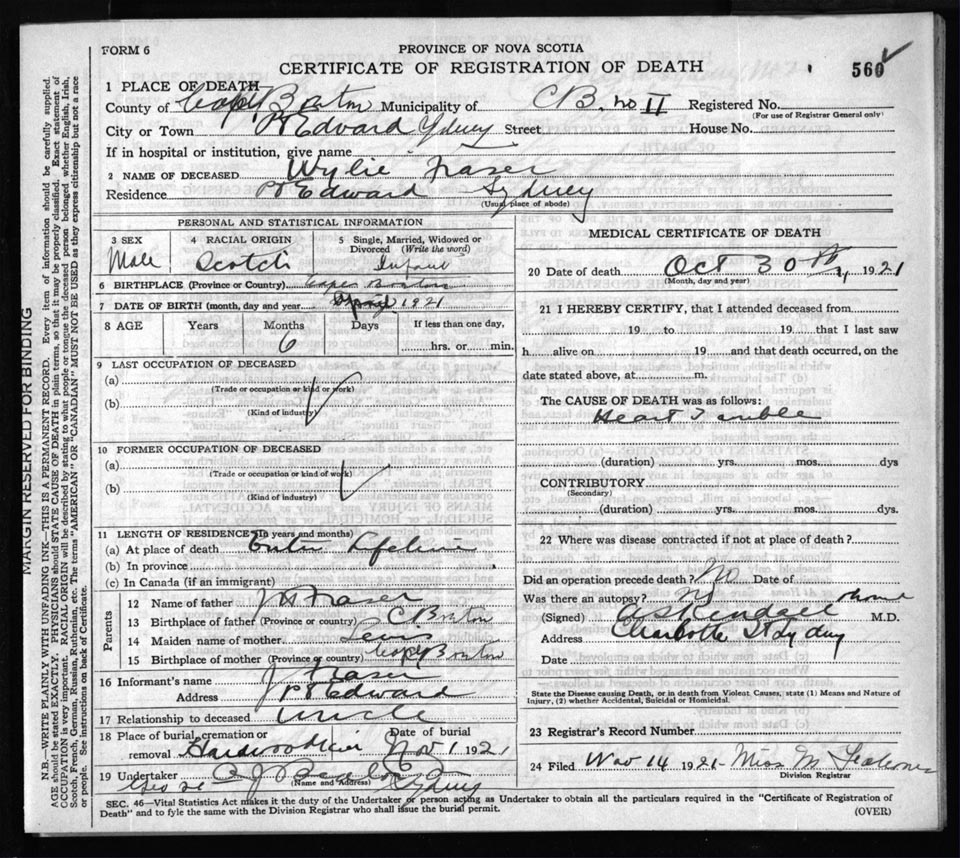 FORM 6
PROVINCE OF NOVA SCOTIA
CERTIFICATE OF REGISTRATION OF DEATH
560
1 PLACE OF DEATH
County of Cape Breton Municipality of C B. no II Registered No.
(For use of Registrar General only)
City or Town Pt Edward Sydney Street House No.
If in hospital or institution, give name
2 NAME OF DECEASED Wylie Fraser
Residence Pt Edward Sydney
(Usual place of abode)
PERSONAL AND STATISTICAL INFORMATION
3 SEX 4 RACIAL ORIGIN 5 Single, Married, Widowed or Divorced (Write the word)
Male Scotch Infant
6 BIRTHPLACE (Province or Country) Cape Breton
7 DATE OF BIRTH (month, day and year) April 1921
8 AGE Years Months Days If less than one day,
6 hrs. or min.
9 LAST OCCUPATION OF DECEASED
(a)
(Trade or occupation or kind or work)
(b)
(Kind of industry)
10 FORMER OCCUPATION OF DECEASED
(a)
(Trade or occupation or kind of work)
(b)
(Kind of industry)
11 LENGTH OF RESIDENCE (In years and months)
(a) At place of death Entire Lifetime
(b) In province
(c) In Canada (if an immigrant)
Parents
12 Name of father J H Fraser
13 Birthplace of father (Province or country) C Breton
14 Maiden name of mother Lewis
15 Birthplace of mother (Province or country) Cape Breton
16 Informant's name J Fraser
Address Pt Edward
17 Relationship to deceased Uncle
18 Place of burial, cremation or removal Date of burial
Hardwood Nov 1 1921
19 Undertaker A J
(Name and Address)
Geo St Sydney
MEDICAL CERTIFICATE OF DEATH
20 Date of death Oct 30th, 1921
(Month, day and year)
21 I HEREBY CERTIFY, that I attended deceased from
19 to 19 that I last saw
h alive on 19 and that death occurred, on the
date stated above, at m.
The CAUSE OF DEATH was as follows:
Heart Trouble
(duration) yrs. mos. dys
CONTRIBUTORY
(Secondary)
(duration) yrs. mos. dys.
22 Where was disease contracted if not at place of death?
Did an operation precede death? No Date of
Was there an autopsy? No
(Signed) A S Kendall M.D.
Address Charlotte St Sydney
Date
State the Disease causing Death, or in death from Violent Causes, state (1) Means and Nature of
Injury, (2) whether Accidental, Suicidal or Homicidal.
23 Registrar's Record Number
24 Filed Nov 14 1921 Miss M
Division Registrar
SEC. 46—Vital Statistics Act makes it the duty of the Undertaker or person acting as Undertaker to obtain all the particulars required in the "Certificate of Registration of
Death" and to fyle the same with the Division Registrar who shall issue the burial permit.
(OVER)
MARGIN RESERVED FOR BINDING
N.B.—WRITE PLAINLY WITH UNFADING INK—THIS IS A PERMANENT RECORD. Every item of information should be carefully supplied.
AGE should be stated EXACTLY. PHYSICIANS should STATE CAUSE OF DEATH in plain terms, so that it may be properly classified. Exact statement of
OCCUPATION is very important. RACIAL ORIGIN will be described by stating to what people or tongue the deceased person belonged whether English, Irish,
Scotch, French, German, Russian, Ruthenian, etc. The terms "AMERICAN" or "CANADIAN" MUST NOT BE USED as they express citizenship but not a race
or people. See instructions on back of Certificate.